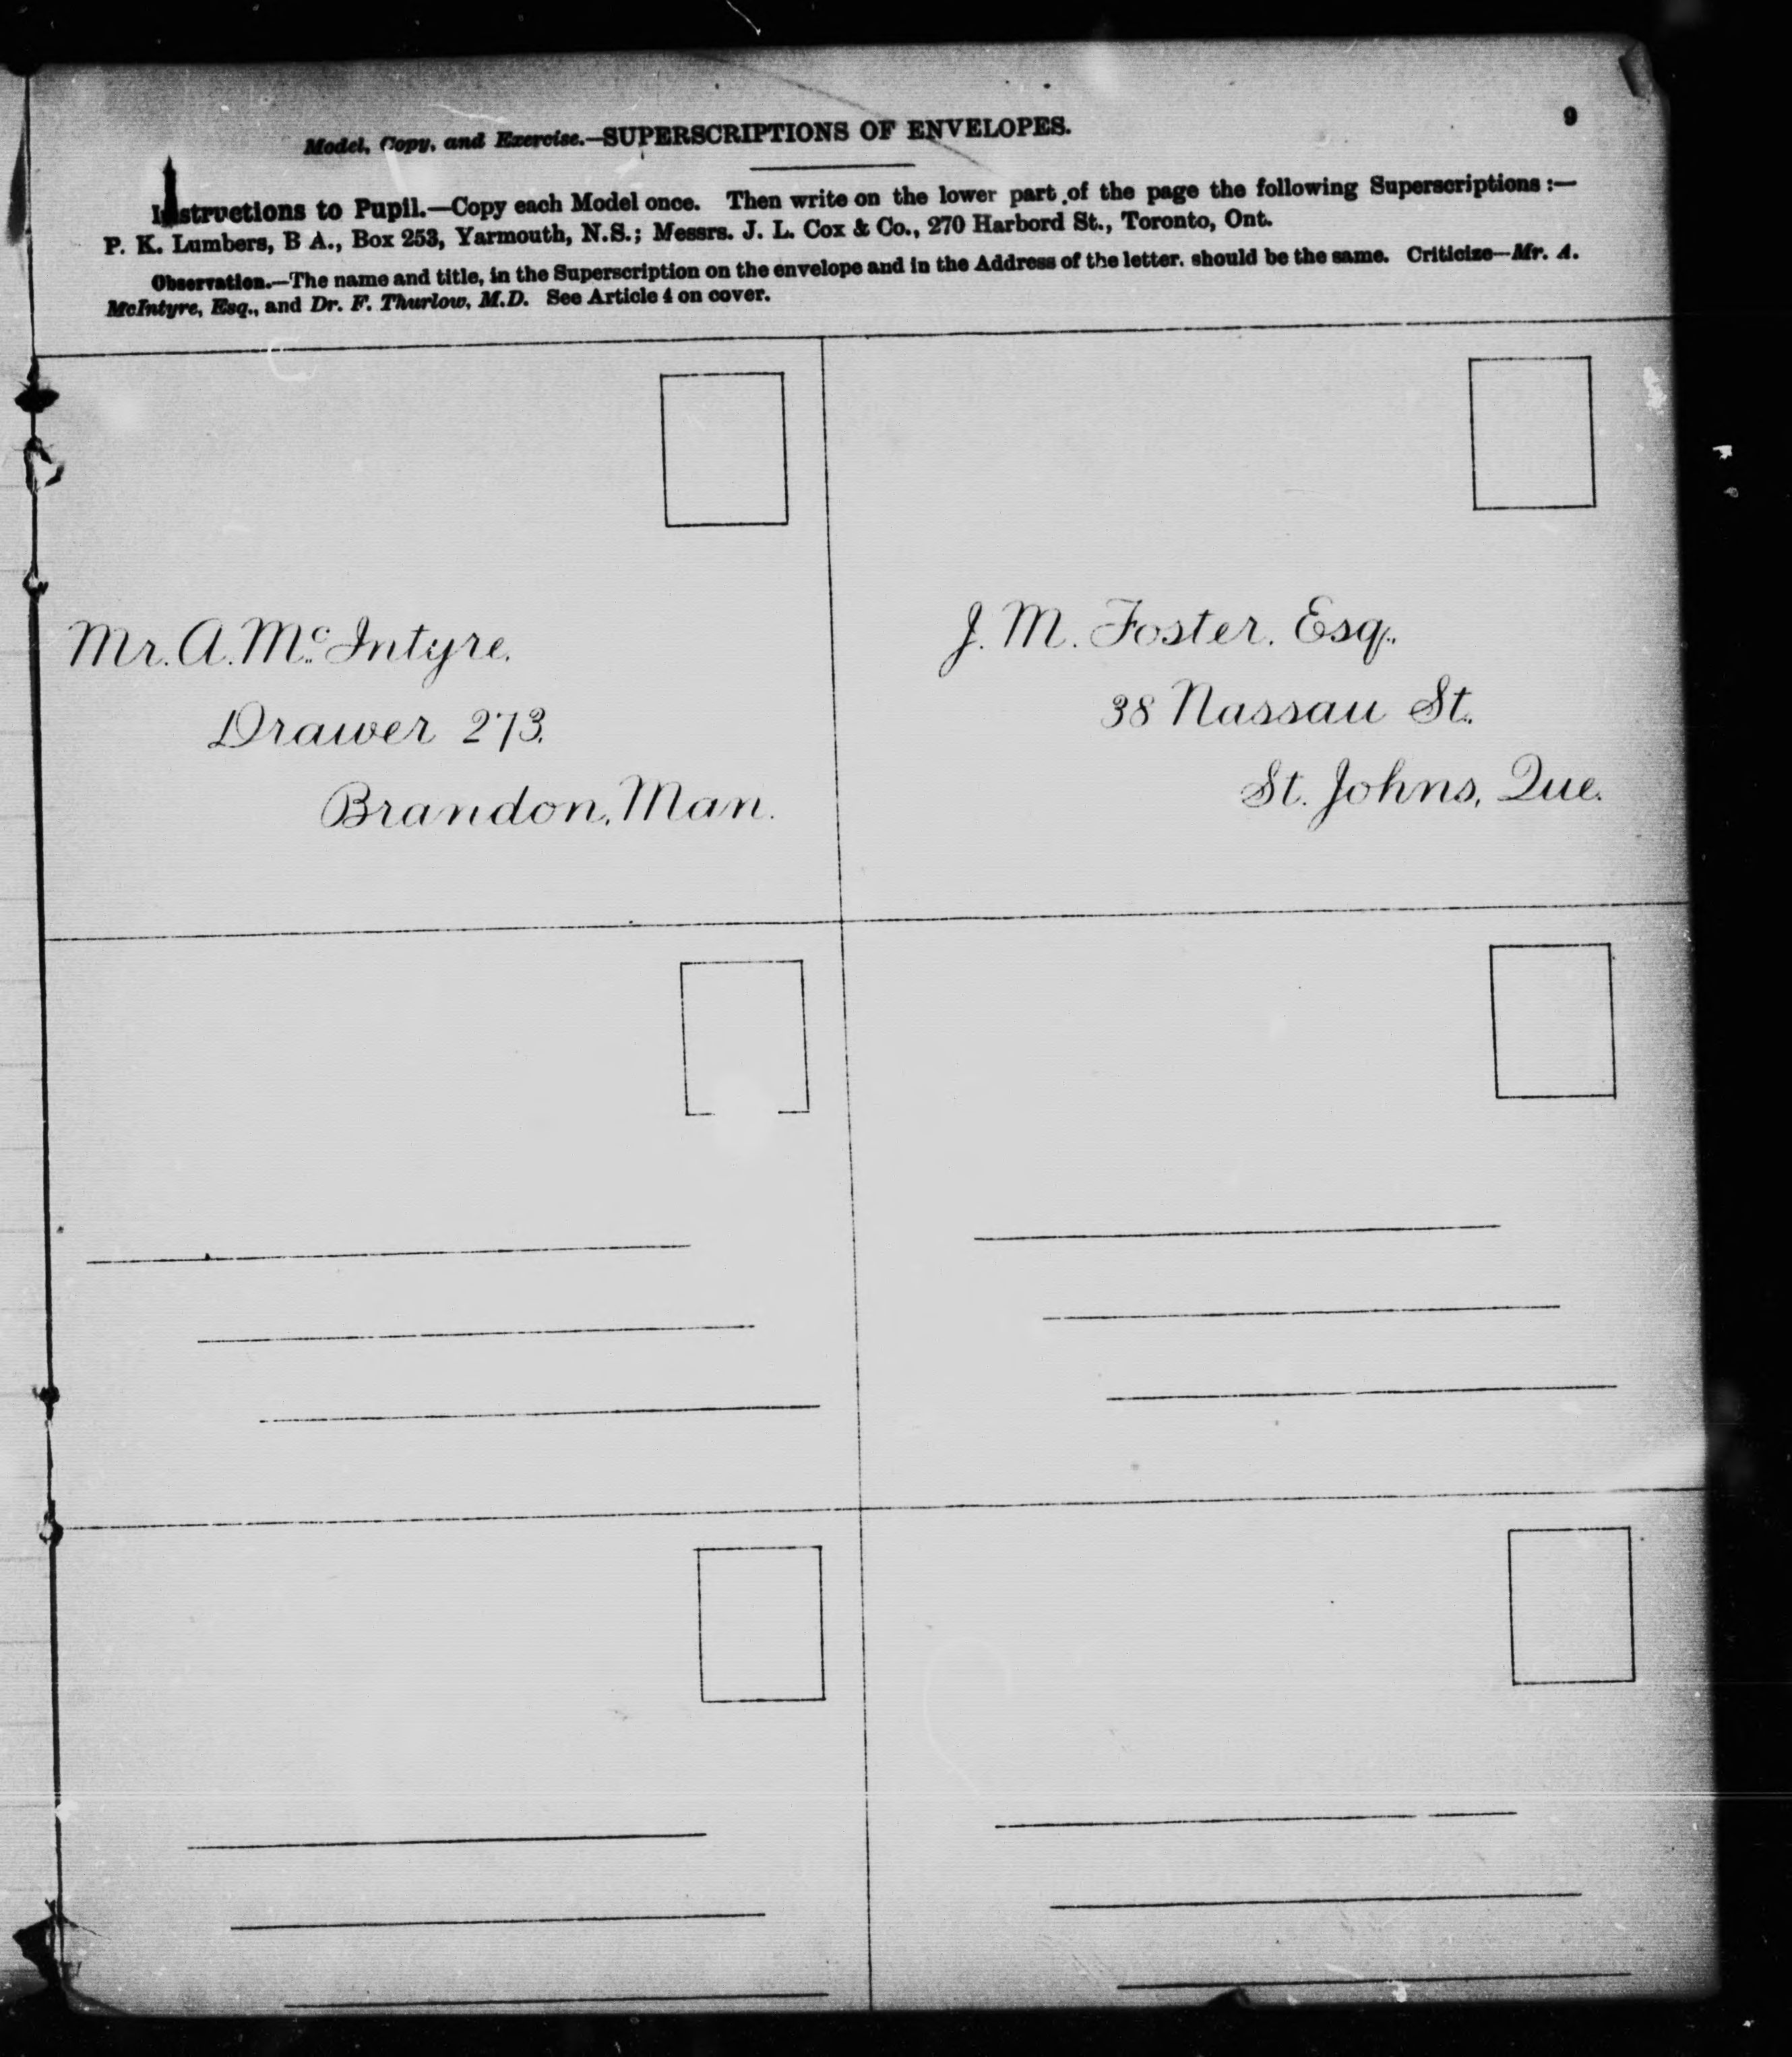 9
Model, Copy, and Exercise.—SUPERSCRIPTIONS OF ENVELOPES.
Instructions to Pupil.—Copy each Model once. Then write on the lower part of the page the following Superscriptions :—
P. K. Lumbers, B A., Box 253, Yarmouth, N.S.; Messrs. J. L. Cox & Co., 270 Harbord St., Toronto, Ont.
Observation.—The name and title, in the Superscription on the envelope and in the Address of the letter. should be the same. Criticize—Mr. A.
McIntyre, Esq., and Dr. F. Thurlow, M.D. See Article 4 on cover.
Mr. A. Mc. Intyre,
Drawer 273,
Brandon, Man.
J. M. Foster, Esq.,
38 Nassau St.,
St. Johns, Que.